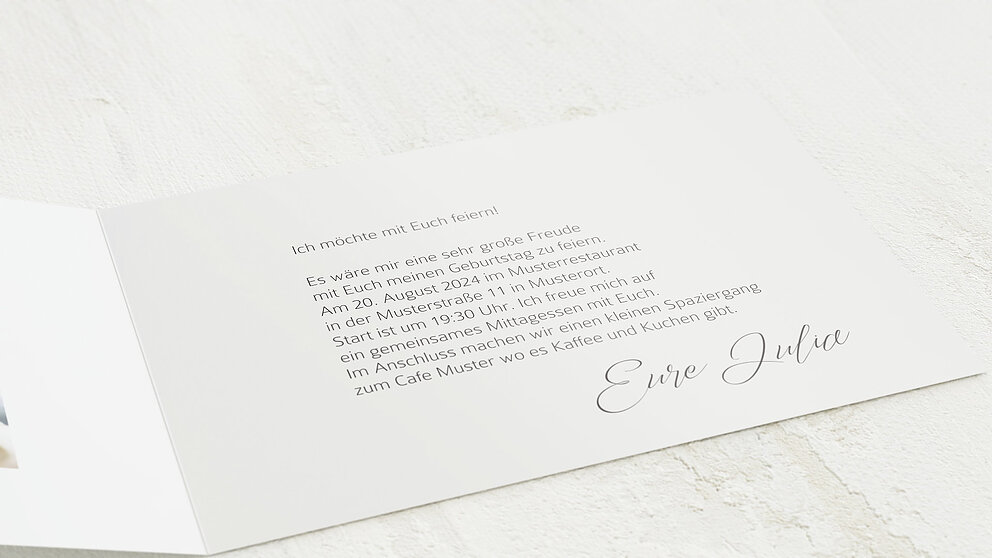 Ich möchte mit Euch feiern!
Es wäre mir eine sehr große Freude
mit Euch meinen Geburtstag zu feiern.
Am 20. August 2024 im Musterrestaurant
in der Musterstraße 11 in Musterort.
Start ist um 19:30 Uhr. Ich freue mich auf
ein gemeinsames Mittagessen mit Euch.
Im Anschluss machen wir einen kleinen Spaziergang
zum Cafe Muster wo es Kaffee und Kuchen gibt.
Eure Julia